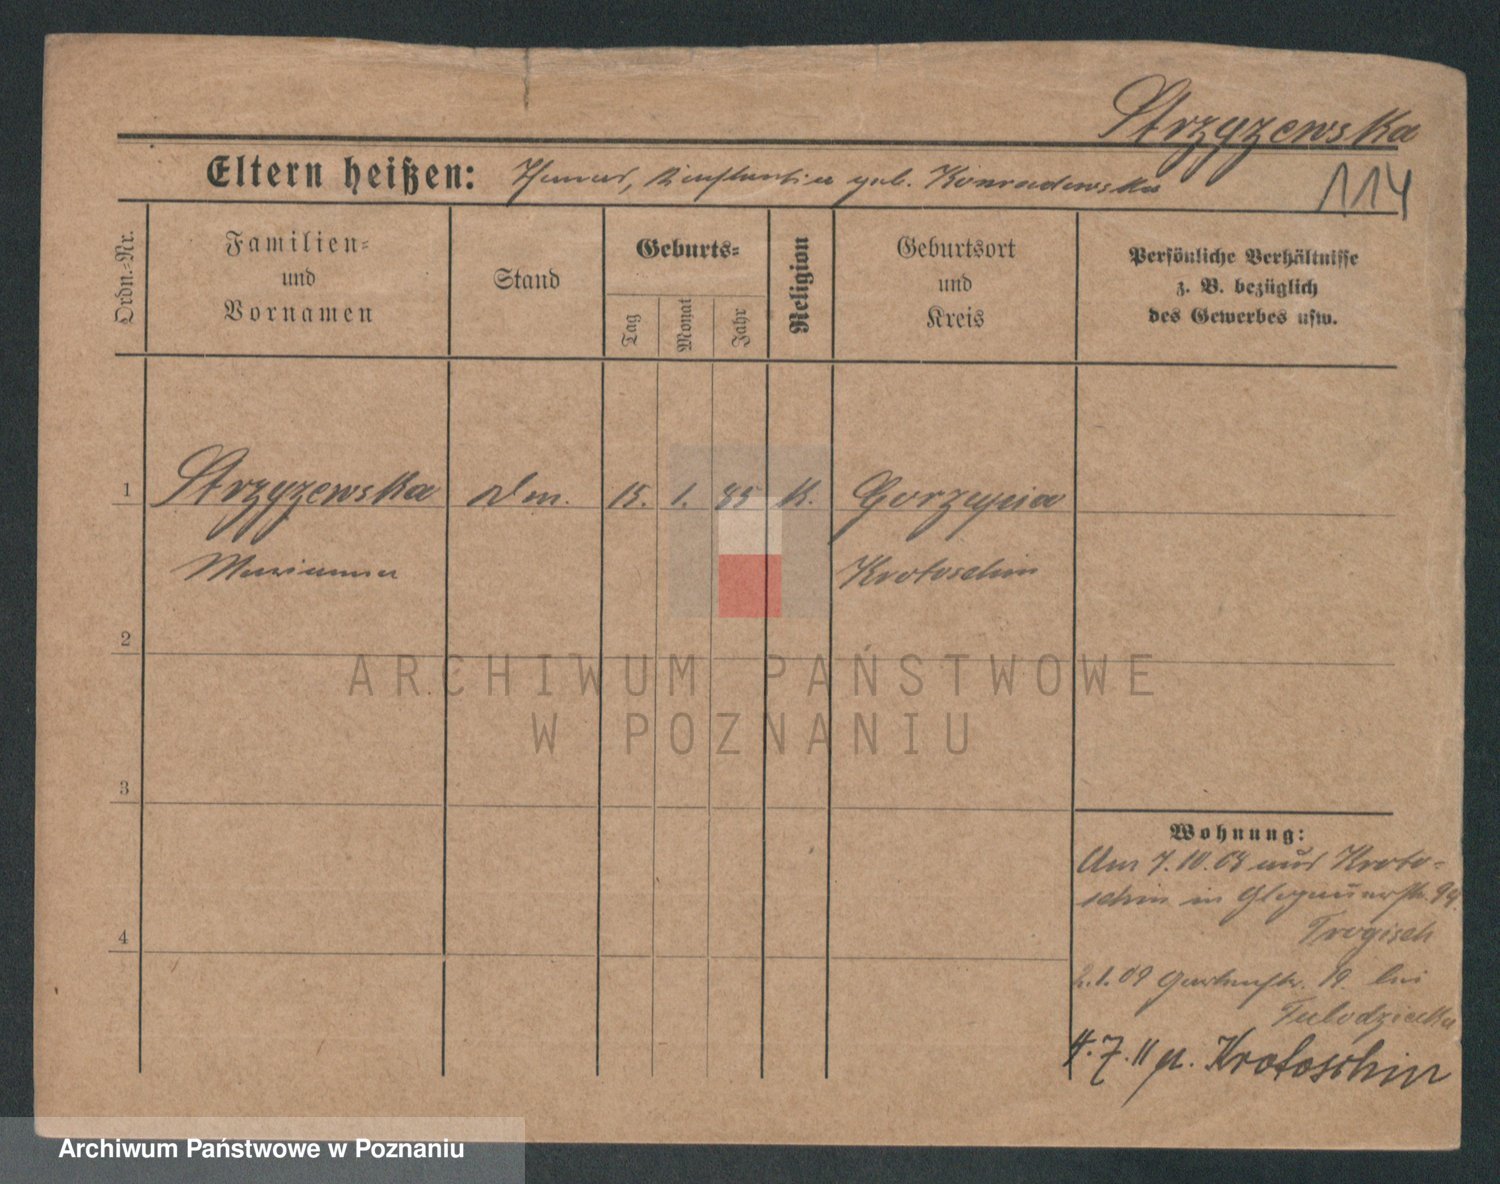 Strzyzewska
Eltern heißen: Thomas, geb. Konradowska
114
Ordn.-Nr.
Familien-
und
Vornamen
Stand
Geburts-
Tag
Monat
Jahr
Religion
Geburtsort
und
Kreis
Persönliche Verhältnisse
z. B. bezüglich
des Gewerbes usw.
1 Strzyzewska 15. 1. 85 K.
Marianna Krotoschin
2
3
4
Wohnung:
Am 7.10.08 aus Kroto-
schin in Glogauerstr. 94.
Trogisch
2.1.09 Gartenstr. 19. bei
Tulodziecka
4.7.11 n. Krotoschin
ARCHIWUM PAŃSTWOWE
W POZNANIU
Archiwum Państwowe w Poznaniu